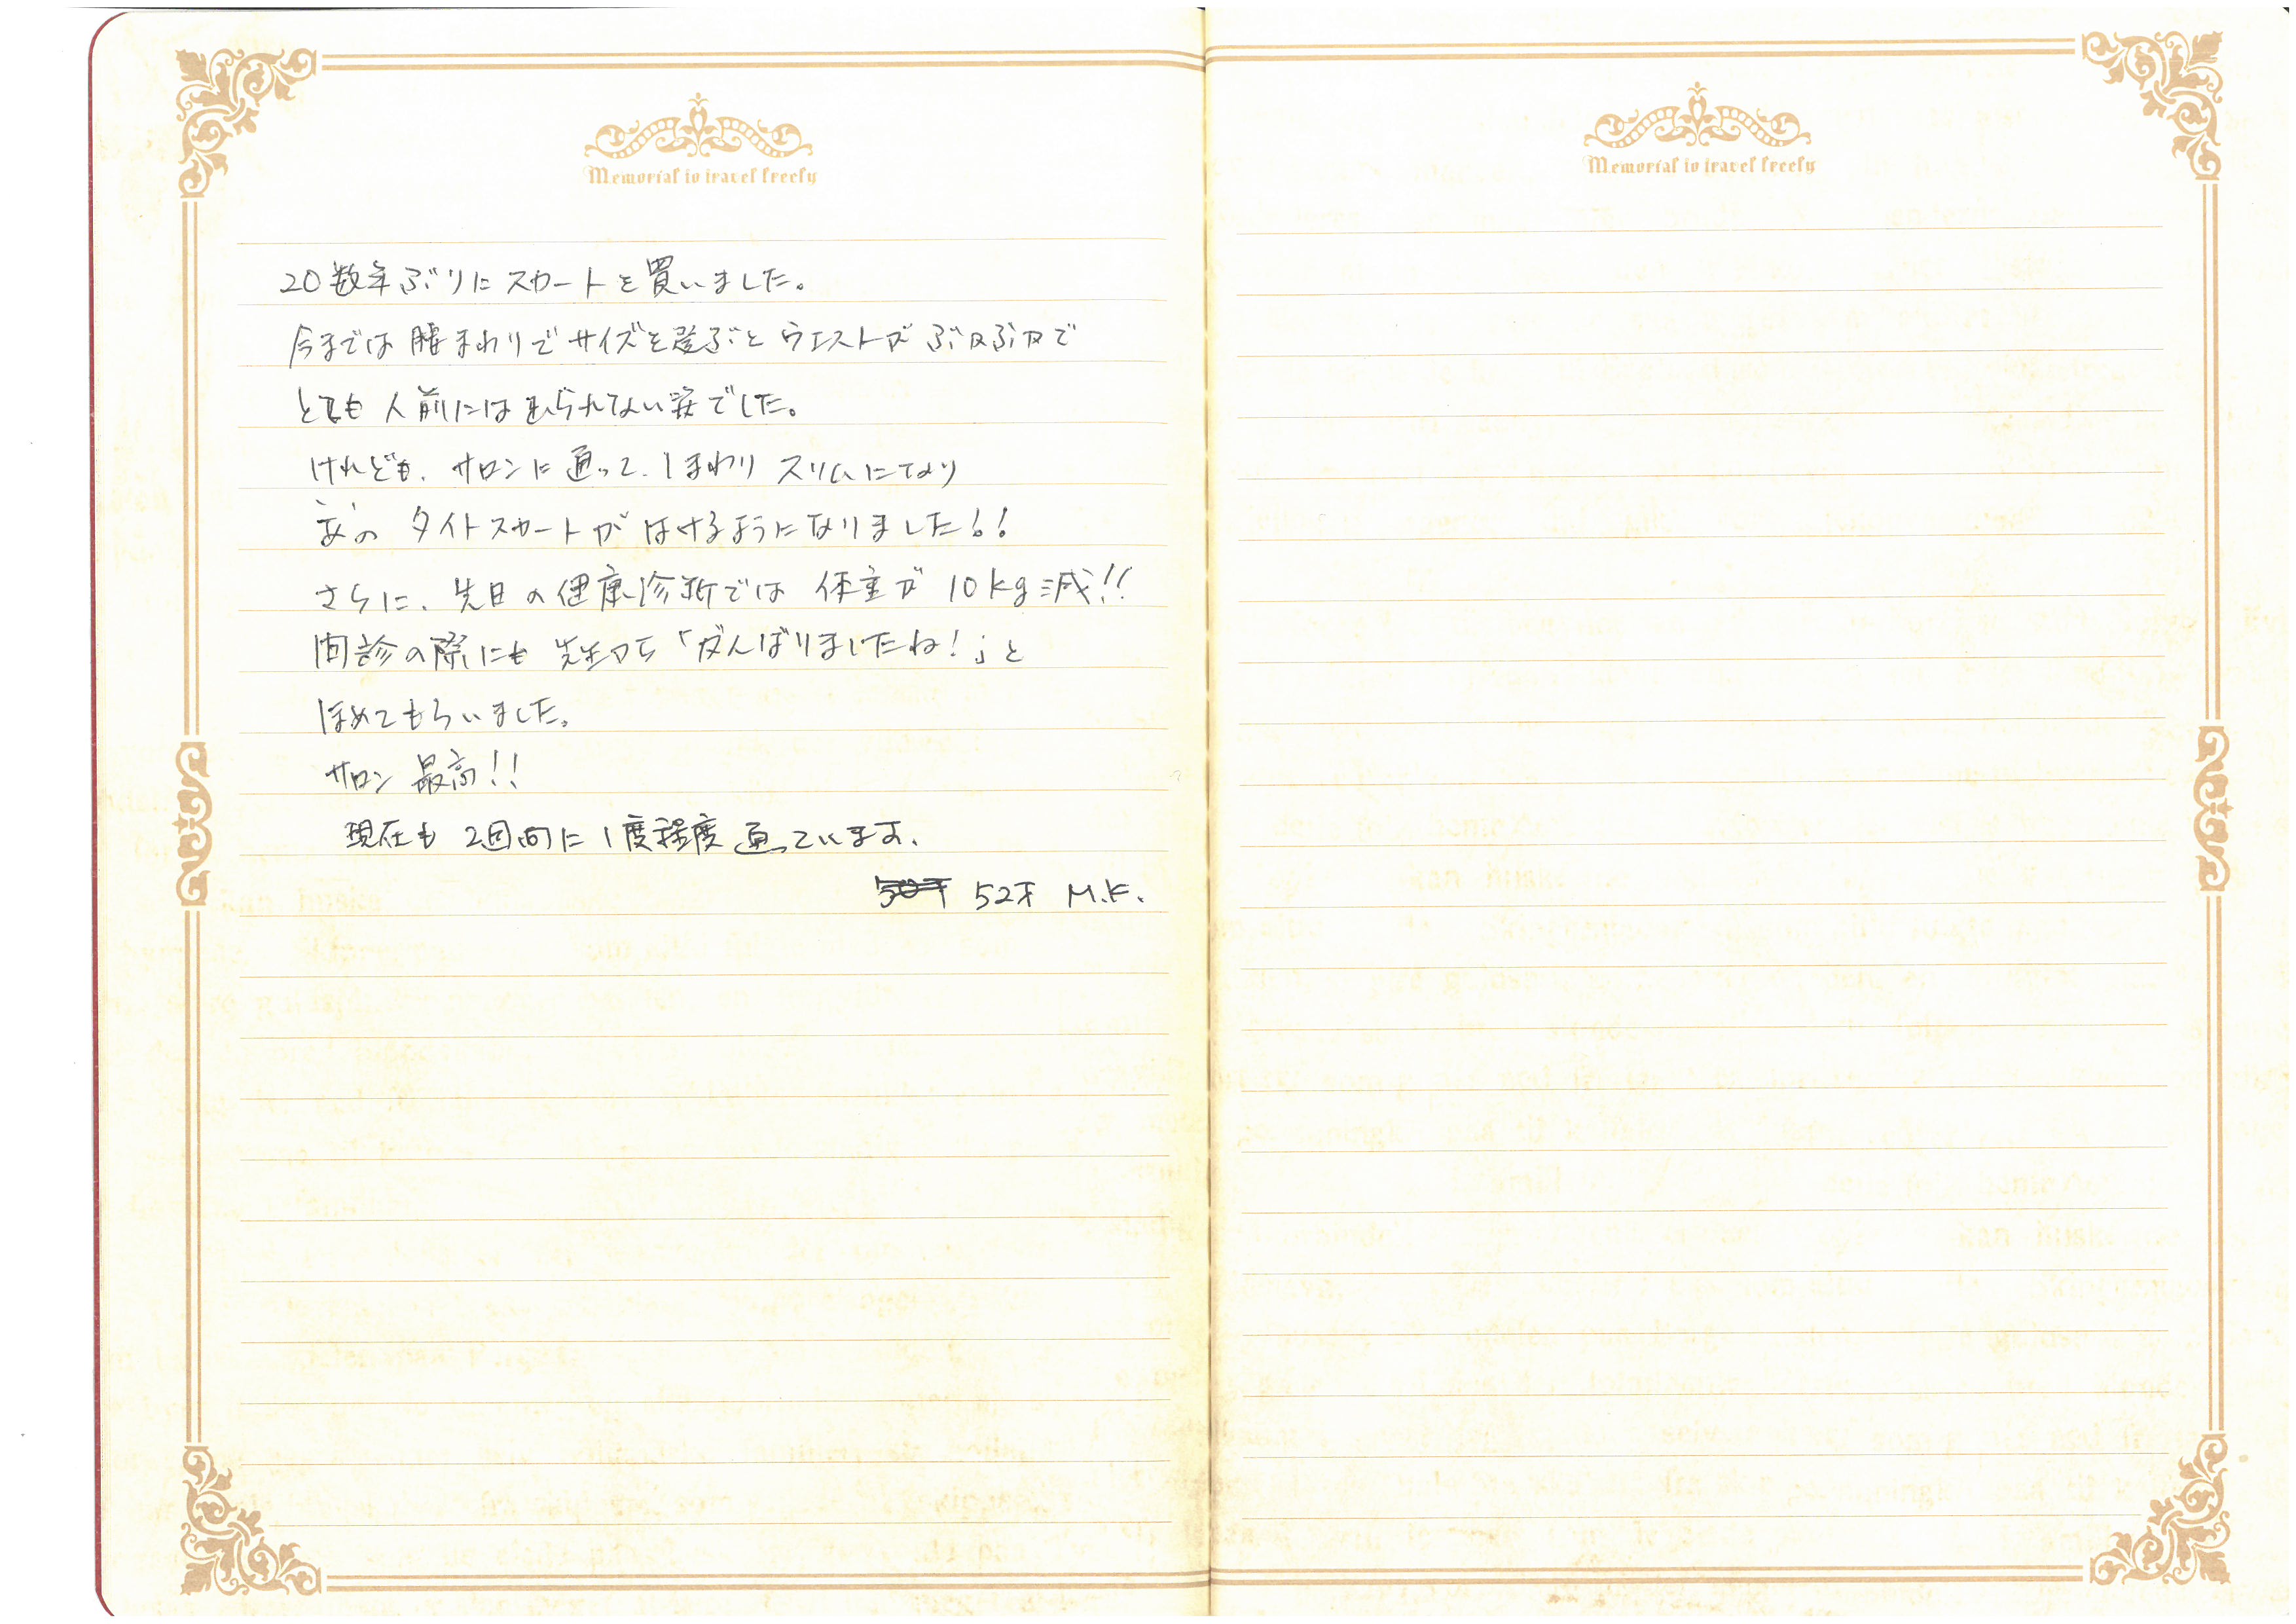 Memorial to travel freely
20数年ぶりにスカートを買いました。
今までは腰まわりでサイズを選ぶとウエストがぶかぶかで
とても人前には出られない姿でした。
けれども、サロンに通って、1まわりスリムになり
あの タイトスカートがはけるようになりました!!
さらに、先日の健康診断では 体重が 10kg減!!
問診の際にも 先生から「がんばりましたね!」と
ほめてもらいました。
サロン 最高!!
現在も 2週間に1度程度通っています。
52才 M.K.
Memorial to travel freely